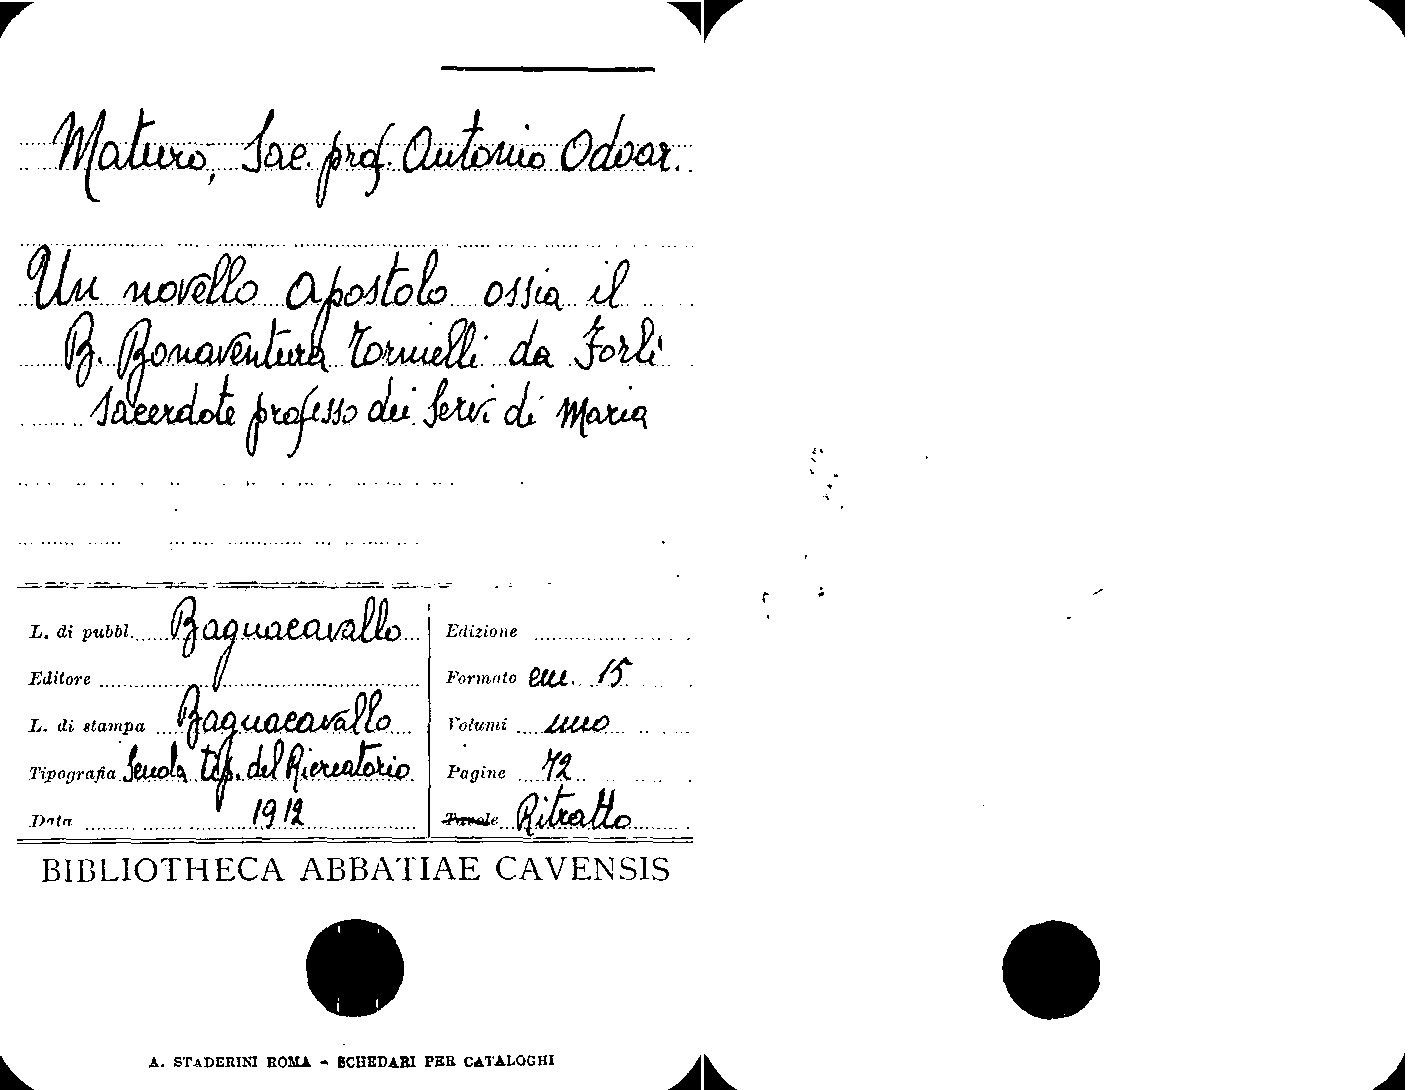 Maturo, Sac. prof. Antonio Odoar.
Un novello apostolo ossia il
B. Bonaventura Tornielli da Forlì
sacerdote professo dei Servi di Maria
L. di pubbl. Bagnacavallo
Editore
L. di stampa Bagnacavallo
Tipografia Scuola tip. del Ricreatorio
Data 1912
Edizione
Formato cm. 15
Volumi uno
Pagine 72
Tavole Ritratto
BIBLIOTHECA ABBATIAE CAVENSIS
A. STADERINI ROMA - SCHEDARI PER CATALOGHI